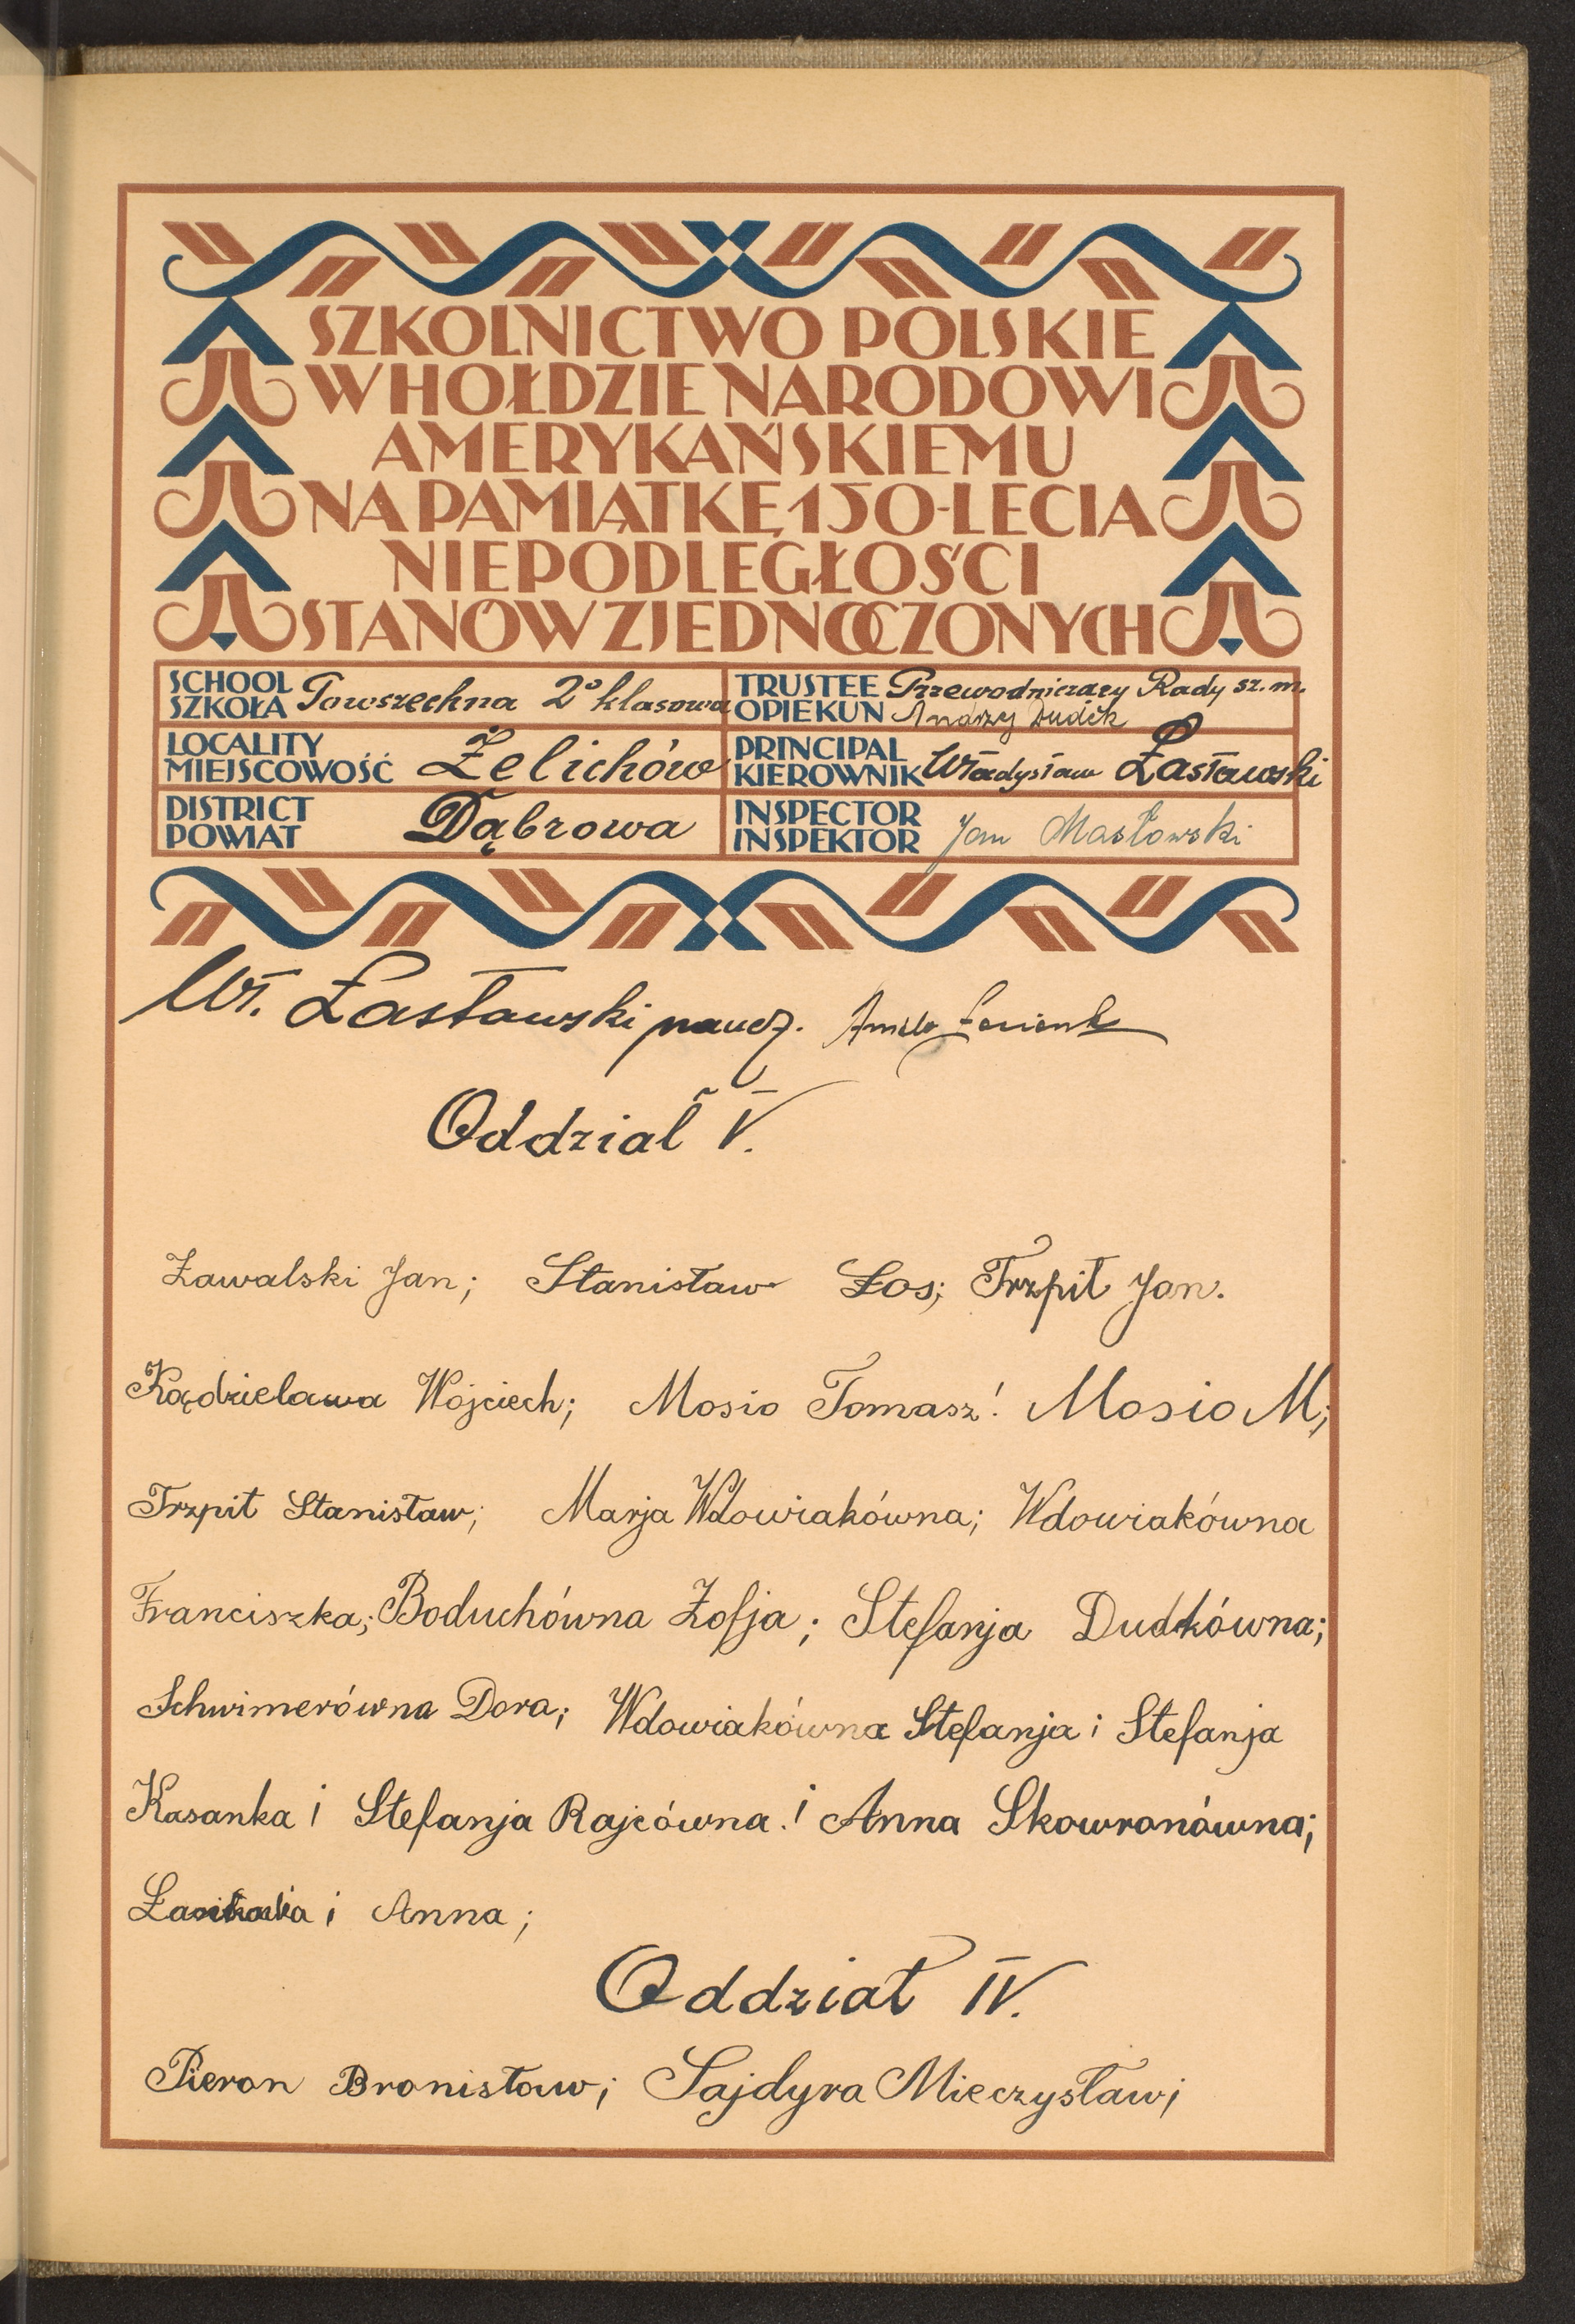 SZKOLNICTWO POLSKIE
W HOŁDZIE NARODOWI
AMERYKAŃSKIEMU
NA PAMIĄTKĘ 150-LECIA
NIEPODLEGŁOŚCI
STANÓW ZJEDNOCZONYCH
SCHOOL
SZKOŁA Powszechna 2º klasowa
TRUSTEE OPIEKUN Przewodniczący Rady sz. m.
Andrzej Dudek
LOCALITY
MIEJSCOWOŚĆ Żelichów
PRINCIPAL
KIEROWNIK Władysław Zasławski
DISTRICT
POWIAT Dąbrowa
INSPECTOR
INSPEKTOR Jan Masłowski
Wł. Zasławski naucz.
Oddział V.
Zawalski Jan; Stanisław Łos; Trzpit Jan.
Kądzielawa Wojciech; Mosio Tomasz! Mosio M;
Trzpit Stanisław; Marja Wdowiakówna; Wdowiakówna
Franciszka; Boduchówna Zofja; Stefanja Dudkówna;
Schwimerówna Dora; Wdowiakówna Stefanja; Stefanja
Kasanka i Stefanja Rajcówna.! Anna Skowronówna;
i Anna;
Oddział IV.
Pieron Bronisław; Sajdyra Mieczysław;